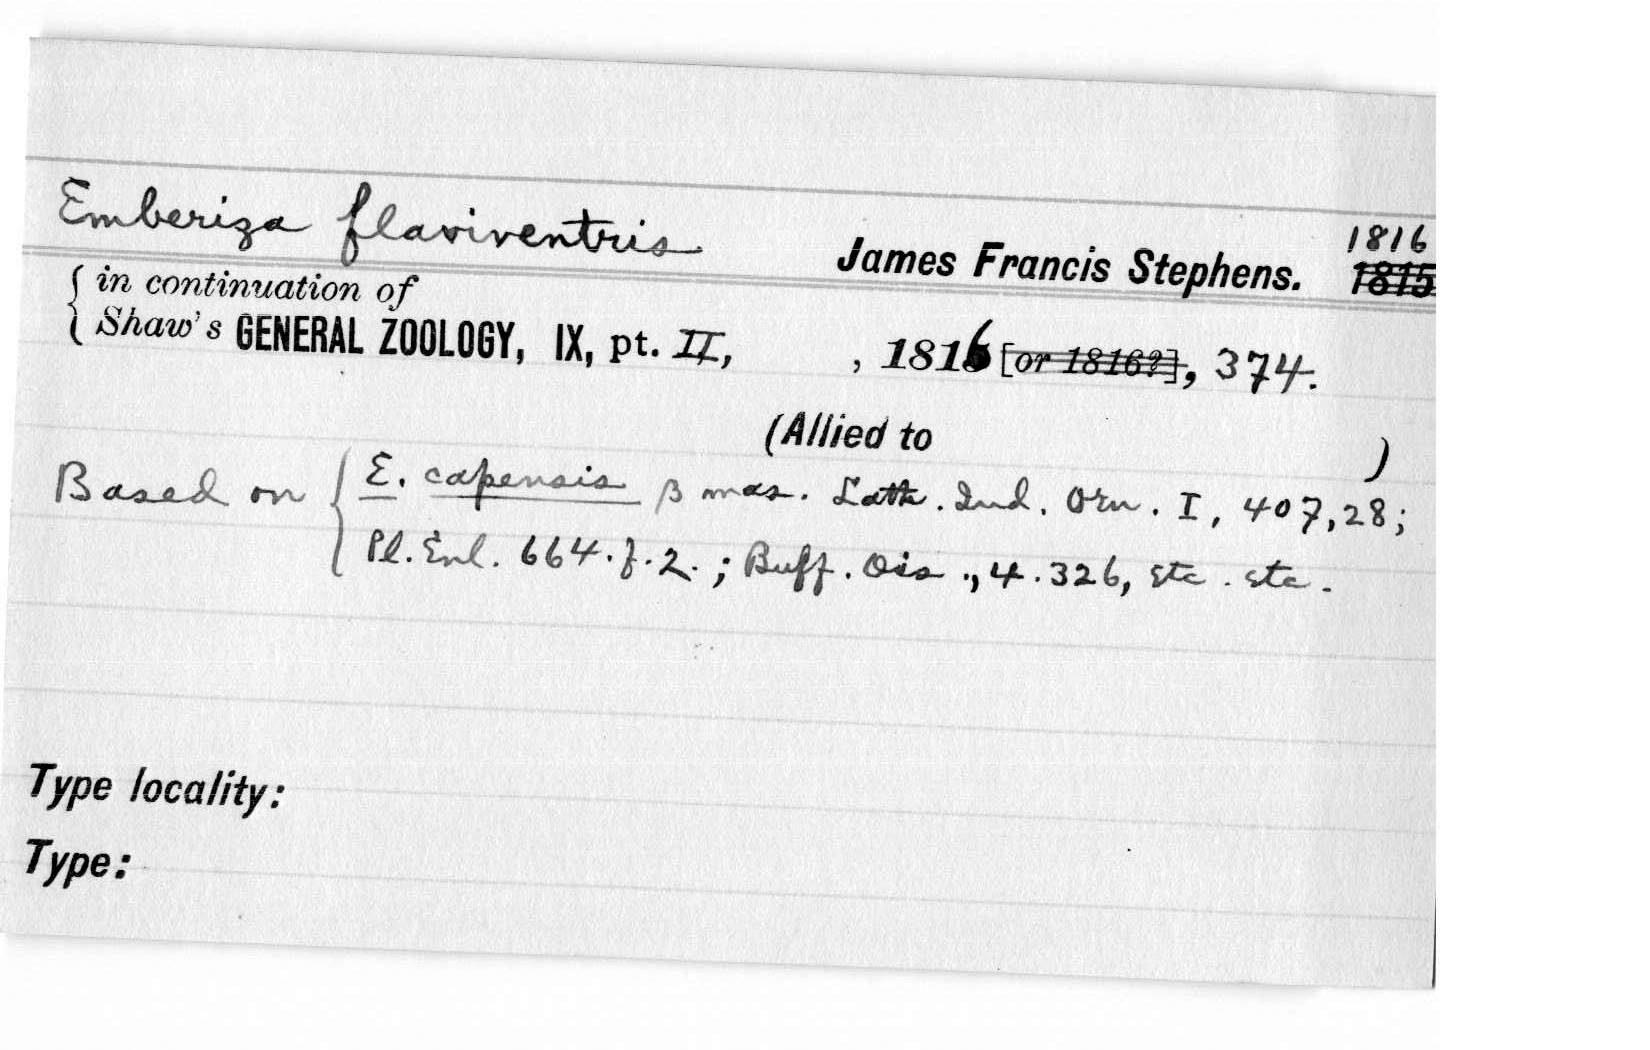 1816
Emberiza flaviventris James Francis Stephens. 1815
{ in continuation of
{ Shaw's GENERAL ZOOLOGY, IX, pt. II, , 1816 [or 1816?], 374.
(Allied to )
Based on { E. capensis β mas. Lath. Ind. Orn. I, 407, 28;
Pl. Enl. 664. f. 2. ; Buff. Ois ., 4. 326, etc. etc.
Type locality:
Type: